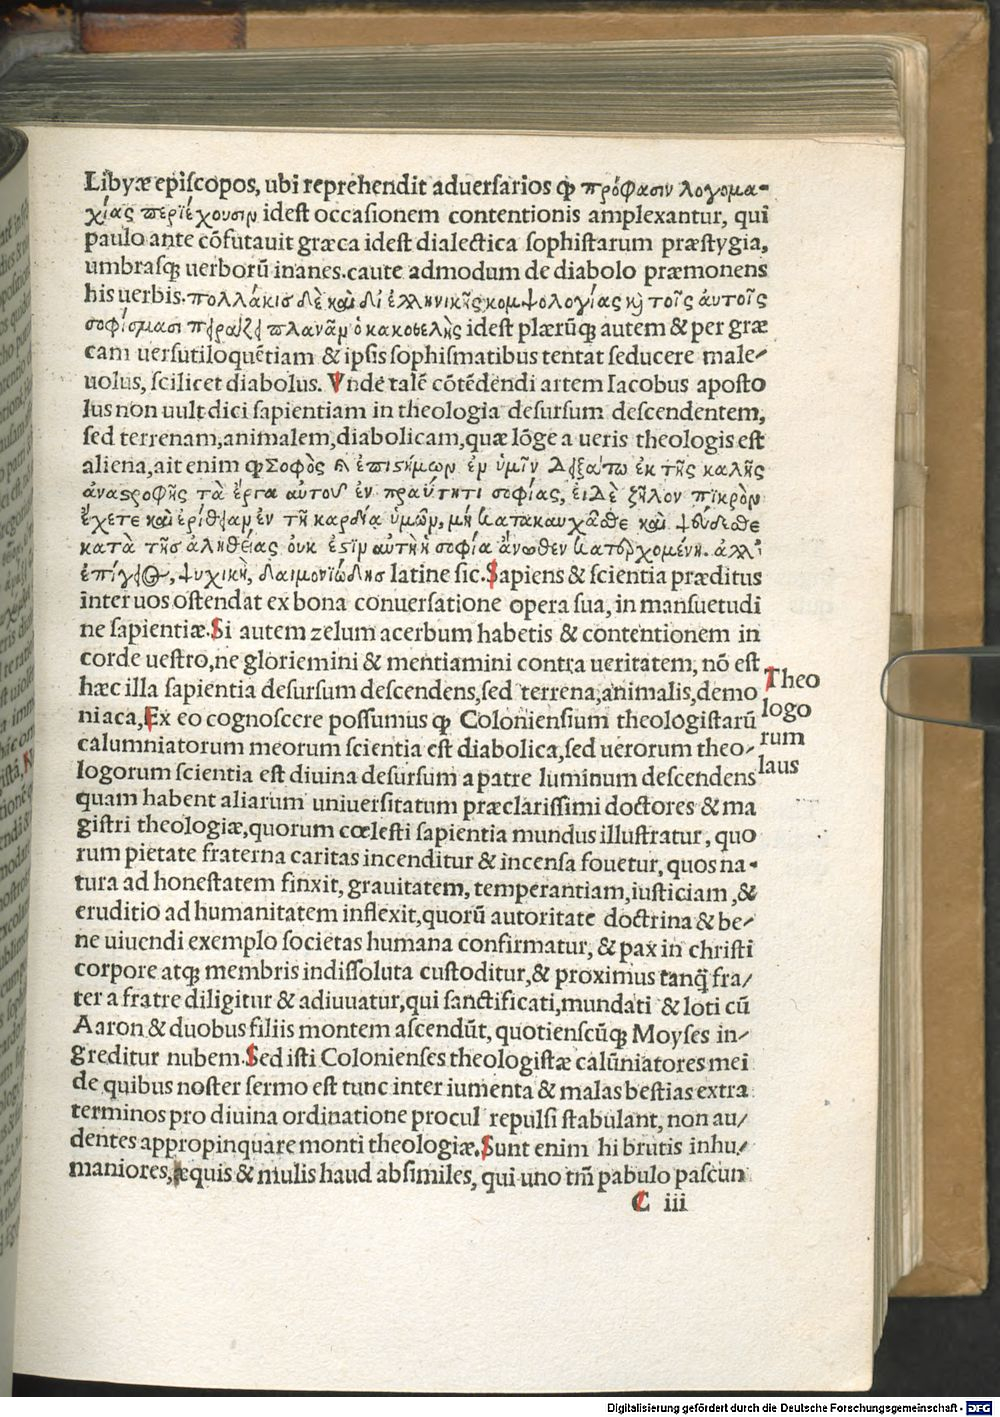 Libyæ epiſcopos, ubi reprehendit aduerſarios ꝙ πρόφασιν λογομα-
χίας περιέχουσιν ideſt occaſionem contentionis amplexantur, qui
paulo ante cōfutauit græca ideſt dialectica ſophiſtarum præſtygia,
umbraſqꝫ uerborū inanes.caute admodum de diabolo præmonens
his uerbis.πολλάκισ δὲ καὶ δἰ ἑλληνικῆς κομψολογίας κỳ τοῖς ἀυτοῖς
σοφίσμασι πειράζει πλανᾶμ ὁ κακοθελὴς ideſt plærūqꝫ autem & per græ
cam uerſutiloquētiam & ipſis ſophiſmatibus tentat ſeducere male⸗
uolus, ſcilicet diabolus. Vnde talē cōtēdendi artem Iacobus apoſto
lus non uult dici ſapientiam in theologia deſurſum deſcendentem,
ſed terrenam,animalem,diabolicam,quæ lōge a ueris theologis eſt
aliena,ait enim ꝙ Σοφὸς ἐπιϛήμωρ ἐμ ὑμῖν Δειξάτω ἐκ τῆς καλῆς
ἀναϛροφῆς τὰ ἔργα αὐτοῦ ἐν πραύτητι σοφίας, ἐιΔὲ ζῆλον πἰκρὸν
ἔχετε καὶ ἐρίθειαμ ἐν τῆ καρδία ὑμῶμ, μὴ κατακαυχᾶσθε καὶ ψεύδεσθε
κατὰ τῆσ ἀληθείας ὀυκ ἔϛιμ αὐτὴ ἡ σοφία ἄνωθεν κατερχομένη. ἀλλ'
ἐπίγειος, ψυχικὴ, δαιμονιώδησ latine ſic.Sapiens & ſcientia præditus
inter uos oſtendat ex bona conuerſatione opera ſua, in manſuetudi
ne ſapientiæ.Si autem zelum acerbum habetis & contentionem in
corde ueſtro,ne gloriemini & mentiamini contra ueritatem, nō eſt
hæc illa ſapientia deſurſum deſcendens,ſed terrena,animalis,demo
niaca,Ex eo cognoſcere poſſumus ꝙ Colonienſium theologiſtarū
calumniatorum meorum ſcientia eſt diabolica,ſed uerorum theo⸗
logorum ſcientia eſt diuina deſurſum a patre luminum deſcendens
quam habent aliarum uniuerſitatum præclariſſimi doctores & ma
giſtri theologiæ,quorum cœleſti ſapientia mundus illuſtratur, quo
rum pietate fraterna caritas incenditur & incenſa fouetur, quos na-
tura ad honeſtatem finxit, grauitatem, temperantiam,iuſticiam ,&
eruditio ad humanitatem inflexit,quorū autoritate doctrina & be⸗
ne uiuendi exemplo ſocietas humana confirmatur, & pax in chriſti
corpore atqꝫ membris indiſſoluta cuſtoditur,& proximus tanq̃ fra⸗
ter a fratre diligitur & adiuuatur,qui ſanctificati,mundati & loti cū
Aaron & duobus filiis montem aſcendūt, quotienſcūqꝫ Moyſes in⸗
greditur nubem.Sed iſti Colonienſes theologiſtæ calūniatores mei
de quibus noſter ſermo eſt tunc inter iumenta & malas beſtias extra
terminos pro diuina ordinatione procul repulſi ſtabulant, non au⸗
dentes appropinquare monti theologiæ.Sunt enim hi brutis inhu⸗
maniores,æquis & mulis haud abſimiles, qui uno tm̄ pabulo paſcun
C iii
Theo
logo
rum
laus
Digitalisierung gefördert durch die Deutsche Forschungsgemeinschaft - DFG